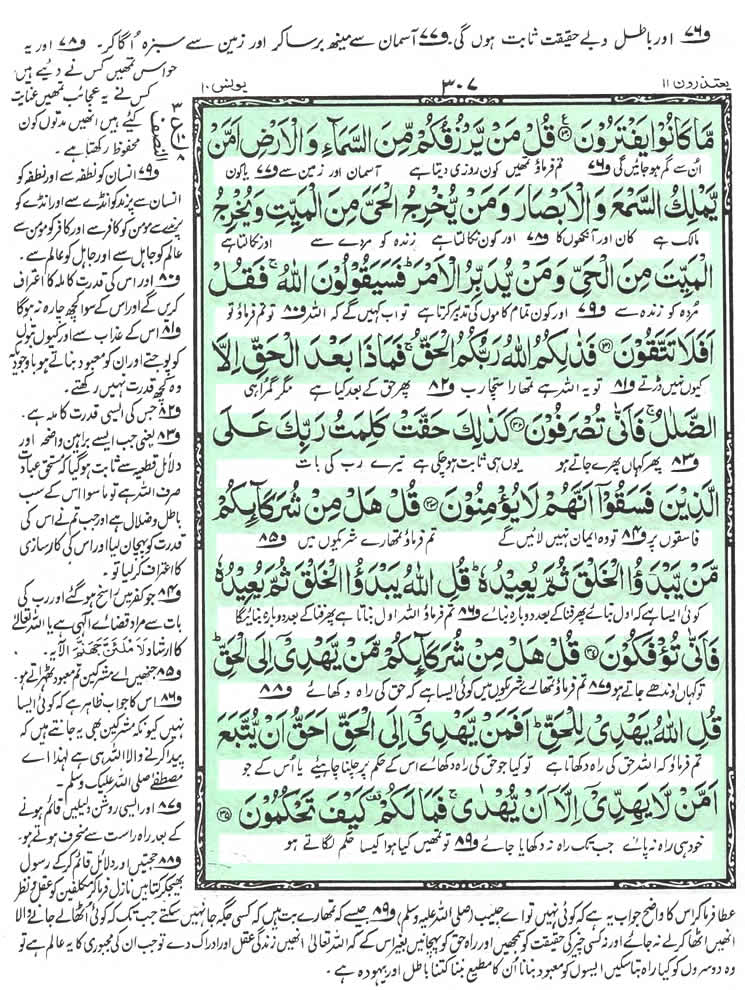 و۷۶ اور باطل و بے حقیقت ثابت ہوں گی۔ و۷۷ آسمان سے مینھ برسا کر اور زمین سے سبزہ اُگا کر۔ و۷۸ اور یہ
حواس تمھیں کس نے دیے ہیں
کس نے یہ عجائب تمھیں عنایت
کیے ہیں انھیں مدتوں کون
محفوظ رکھتا ہے۔
و۷۹ انسان کو نطفہ سے اور نطفہ کو
انسان سے پرند کو انڈے سے اور انڈے کو
پرندے سے مومن کو کافر سے اور کافر کو مومن سے
عالم کو جاہل سے اور جاہل کو عالم سے۔
و۸۰ اور اس کی قدرت کاملہ کا اعتراف
کریں گے اور اس کے سوا کچھ چارہ نہ ہوگا
و۸۱ اس کے عذاب سے اور کیوں بتوں
کو پوجتے اور ان کو معبود بناتے ہو باوجودیکہ
وہ کچھ قدرت نہیں رکھتے۔
و۸۲ جس کی ایسی قدرت کاملہ ہے۔
و۸۳ یعنی جب ایسے براہین واضحہ اور
دلائل قطعیہ سے ثابت ہوگیا کہ مستحق عبادت
صرف اللہ ہے تو ماسوا اس کے سب
باطل و ضلال ہے اور جب تم نے اس کی
قدرت کو پہچان لیا اور اس کی کارسازی
کا اعتراف کر لیا تو۔
و۸۴ جو کفر میں راسخ ہوگئے اور رب کی
بات سے مراد قضائے الٰہی ہے یا اللہ تعالیٰ
کا ارشاد لَاَمْلَئَنَّ جَهَنَّمَ الآیہ۔
و۸۵ جنھیں اے مشرکین تم معبود ٹھہراتے ہو۔
و۸۶ اس کا جواب ظاہر ہے کہ کوئی ایسا
نہیں کیونکہ مشرکین بھی یہ جانتے ہیں کہ
پیدا کرنے والا اللہ ہی ہے لہذا اے
مصطفےٰ صلی اللہ علیک وسلم۔
و۸۷ اور ایسی روشن دلیلیں قائم ہونے
کے بعد راہ راست سے منحرف ہوتے ہو۔
و۸۸ حجتیں اور دلائل قائم کرکے رسول
بھیج کر کتابیں نازل فرما کر مکلفین کو عقل و نظر
یعتذرون ۱۱
۳۰۷
یونس ۱۰
مَّا كَانُوْا یَفْتَرُوْنَ۠ قُلْ مَنْ یَّرْزُقُكُمْ مِّنَ السَّمَآءِ وَ الْاَرْضِ اَمَّنْ
اُن سے گم ہوجائیں گی و۷۶ تم فرماؤ تمھیں کون روزی دیتا ہے آسمان اور زمین سے و۷۷ یا کون
یَّمْلِكُ السَّمْعَ وَ الْاَبْصَارَ وَ مَنْ یُّخْرِ جُ الْحَیَّ مِنَ الْمَیِّتِ وَ یُخْرِ جُ
مالک ہے کان اور آنکھوں کا و۷۸ اور کون نکالتا ہے زندہ کو مردے سے اور نکالتا ہے
الْمَیِّتَ مِنَ الْحَیِّ وَ مَنْ یُّدَبِّرُ الْاَمْرَؕ فَسَیَقُوْلُوْنَ اللّٰهُۚ فَقُلْ
مردہ کو زندہ سے و۷۹ اور کون تمام کاموں کی تدبیر کرتا ہے تو اب کہیں گے کہ اللہ و۸۰ تو تم فرماؤ تو
اَفَلَا تَتَّقُوْنَ ۳۱ فَذٰلِكُمُ اللّٰهُ رَبُّكُمُ الْحَقُّۚ فَمَا ذَا بَعْدَ الْحَقِّ اِلَّا
کیوں نہیں ڈرتے و۸۱ تو یہ اللہ ہے تمھارا سچا رب و۸۲ پھر حق کے بعد کیا ہے مگر گمراہی
الضَّلٰلُ ۚ فَاَنّٰى تُصْرَفُوْنَ ۳۲ كَذٰلِكَ حَقَّتْ كَلِمَتُ رَبِّكَ عَلَى
و۸۳ پھر کہاں پھرے جاتے ہو یوں ہی ثابت ہوچکی ہے تیرے رب کی بات
الَّذِیْنَ فَسَقُوْۤا اَنَّهُمْ لَا یُؤْمِنُوْنَ ۳۳ قُلْ هَلْ مِنْ شُرَكَآىٕكُمْ
فاسقوں پر و۸۴ تو وہ ایمان نہیں لائیں گے تم فرماؤ تمھارے شریکوں میں و۸۵
مَّنْ یَّبْدَؤُا الْخَلْقَ ثُمَّ یُعِیْدُهٗؕ قُلِ اللّٰهُ یَبْدَؤُا الْخَلْقَ ثُمَّ یُعِیْدُهٗ
کوئی ایسا ہے کہ اول بنائے پھر فنا کے بعد دوبارہ بنائے و۸۶ تم فرماؤ اللہ اول بناتا ہے پھر فنا کے بعد دوبارہ بنائیگا
فَاَنّٰى تُؤْفَكُوْنَ ۳۴ قُلْ هَلْ مِنْ شُرَكَآىٕكُمْ مَّنْ یَّهْدِیْۤ اِلَى الْحَقِّؕ
تو کہاں اوندھے جاتے ہو و۸۷ تم فرماؤ تمھارے شریکوں میں کوئی ایسا ہے کہ حق کی راہ دکھائے و۸۸
قُلِ اللّٰهُ یَهْدِیْ لِلْحَقِّؕ اَفَمَنْ یَّهْدِیْۤ اِلَى الْحَقِّ اَحَقُّ اَنْ یُّتَّبَعَ
تم فرماؤ کہ اللہ حق کی راہ دکھاتا ہے تو کیا جو حق کی راہ دکھائے اس کے حکم پر چلنا چاہیئے یا اُس کے جو
اَمَّنْ لَّا یَهِدِّیْۤ اِلَّاۤ اَنْ یُّهْدٰىۚ فَمَا لَكُمْ كَیْفَ تَحْكُمُوْنَ ۳۵
خود ہی راہ نہ پائے جب تک راہ نہ دکھایا جائے و۸۹ تو تمھیں کیا ہوا کیسا حکم لگاتے ہو
عطا فرما کر اس کا واضح جواب یہ ہے کہ کوئی نہیں تو اے حبیب (صلی اللہ علیہ وسلم) و۸۹ جیسے کہ تمھارے بت ہیں کہ کسی جگہ جا نہیں سکتے جب تک کہ کوئی اُٹھالے جانے والا
انھیں اٹھا کر لے نہ جائے اور نہ کسی چیز کی حقیقت کو سمجھیں اور راہ حق کو پہچانیں بغیر اس کے کہ اللہ تعالیٰ انھیں زندگی عقل اور ادراک دے تو جب ان کی مجبوری کا یہ عالم ہے تو
وہ دوسروں کو کیا راہ بتاسکیں ایسوں کو معبود بنانا اُن کا مطیع بننا کتنا باطل اور بیہودہ ہے۔